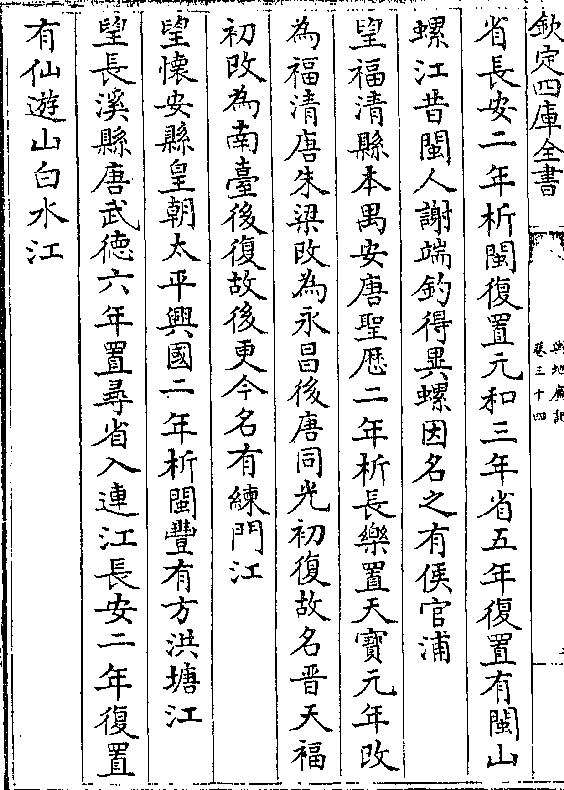 欽定四庫全書
輿地廣記
卷三十四
省長安二年析閩復置元和三年省五年復置有閩山
螺江昔閩人謝端釣得異螺因名之有侯官浦
望福清縣本萬安唐聖厯二年析長樂置天寶元年改
為福清唐朱梁改為永昌後唐同光初復故名晋天福
初改為南臺後復故後更今名有練門江
望懷安縣皇朝太平興國二年析閩豐有方洪塘江
望長溪縣唐武德六年置尋省入連江長安二年復置
有仙遊山白水江